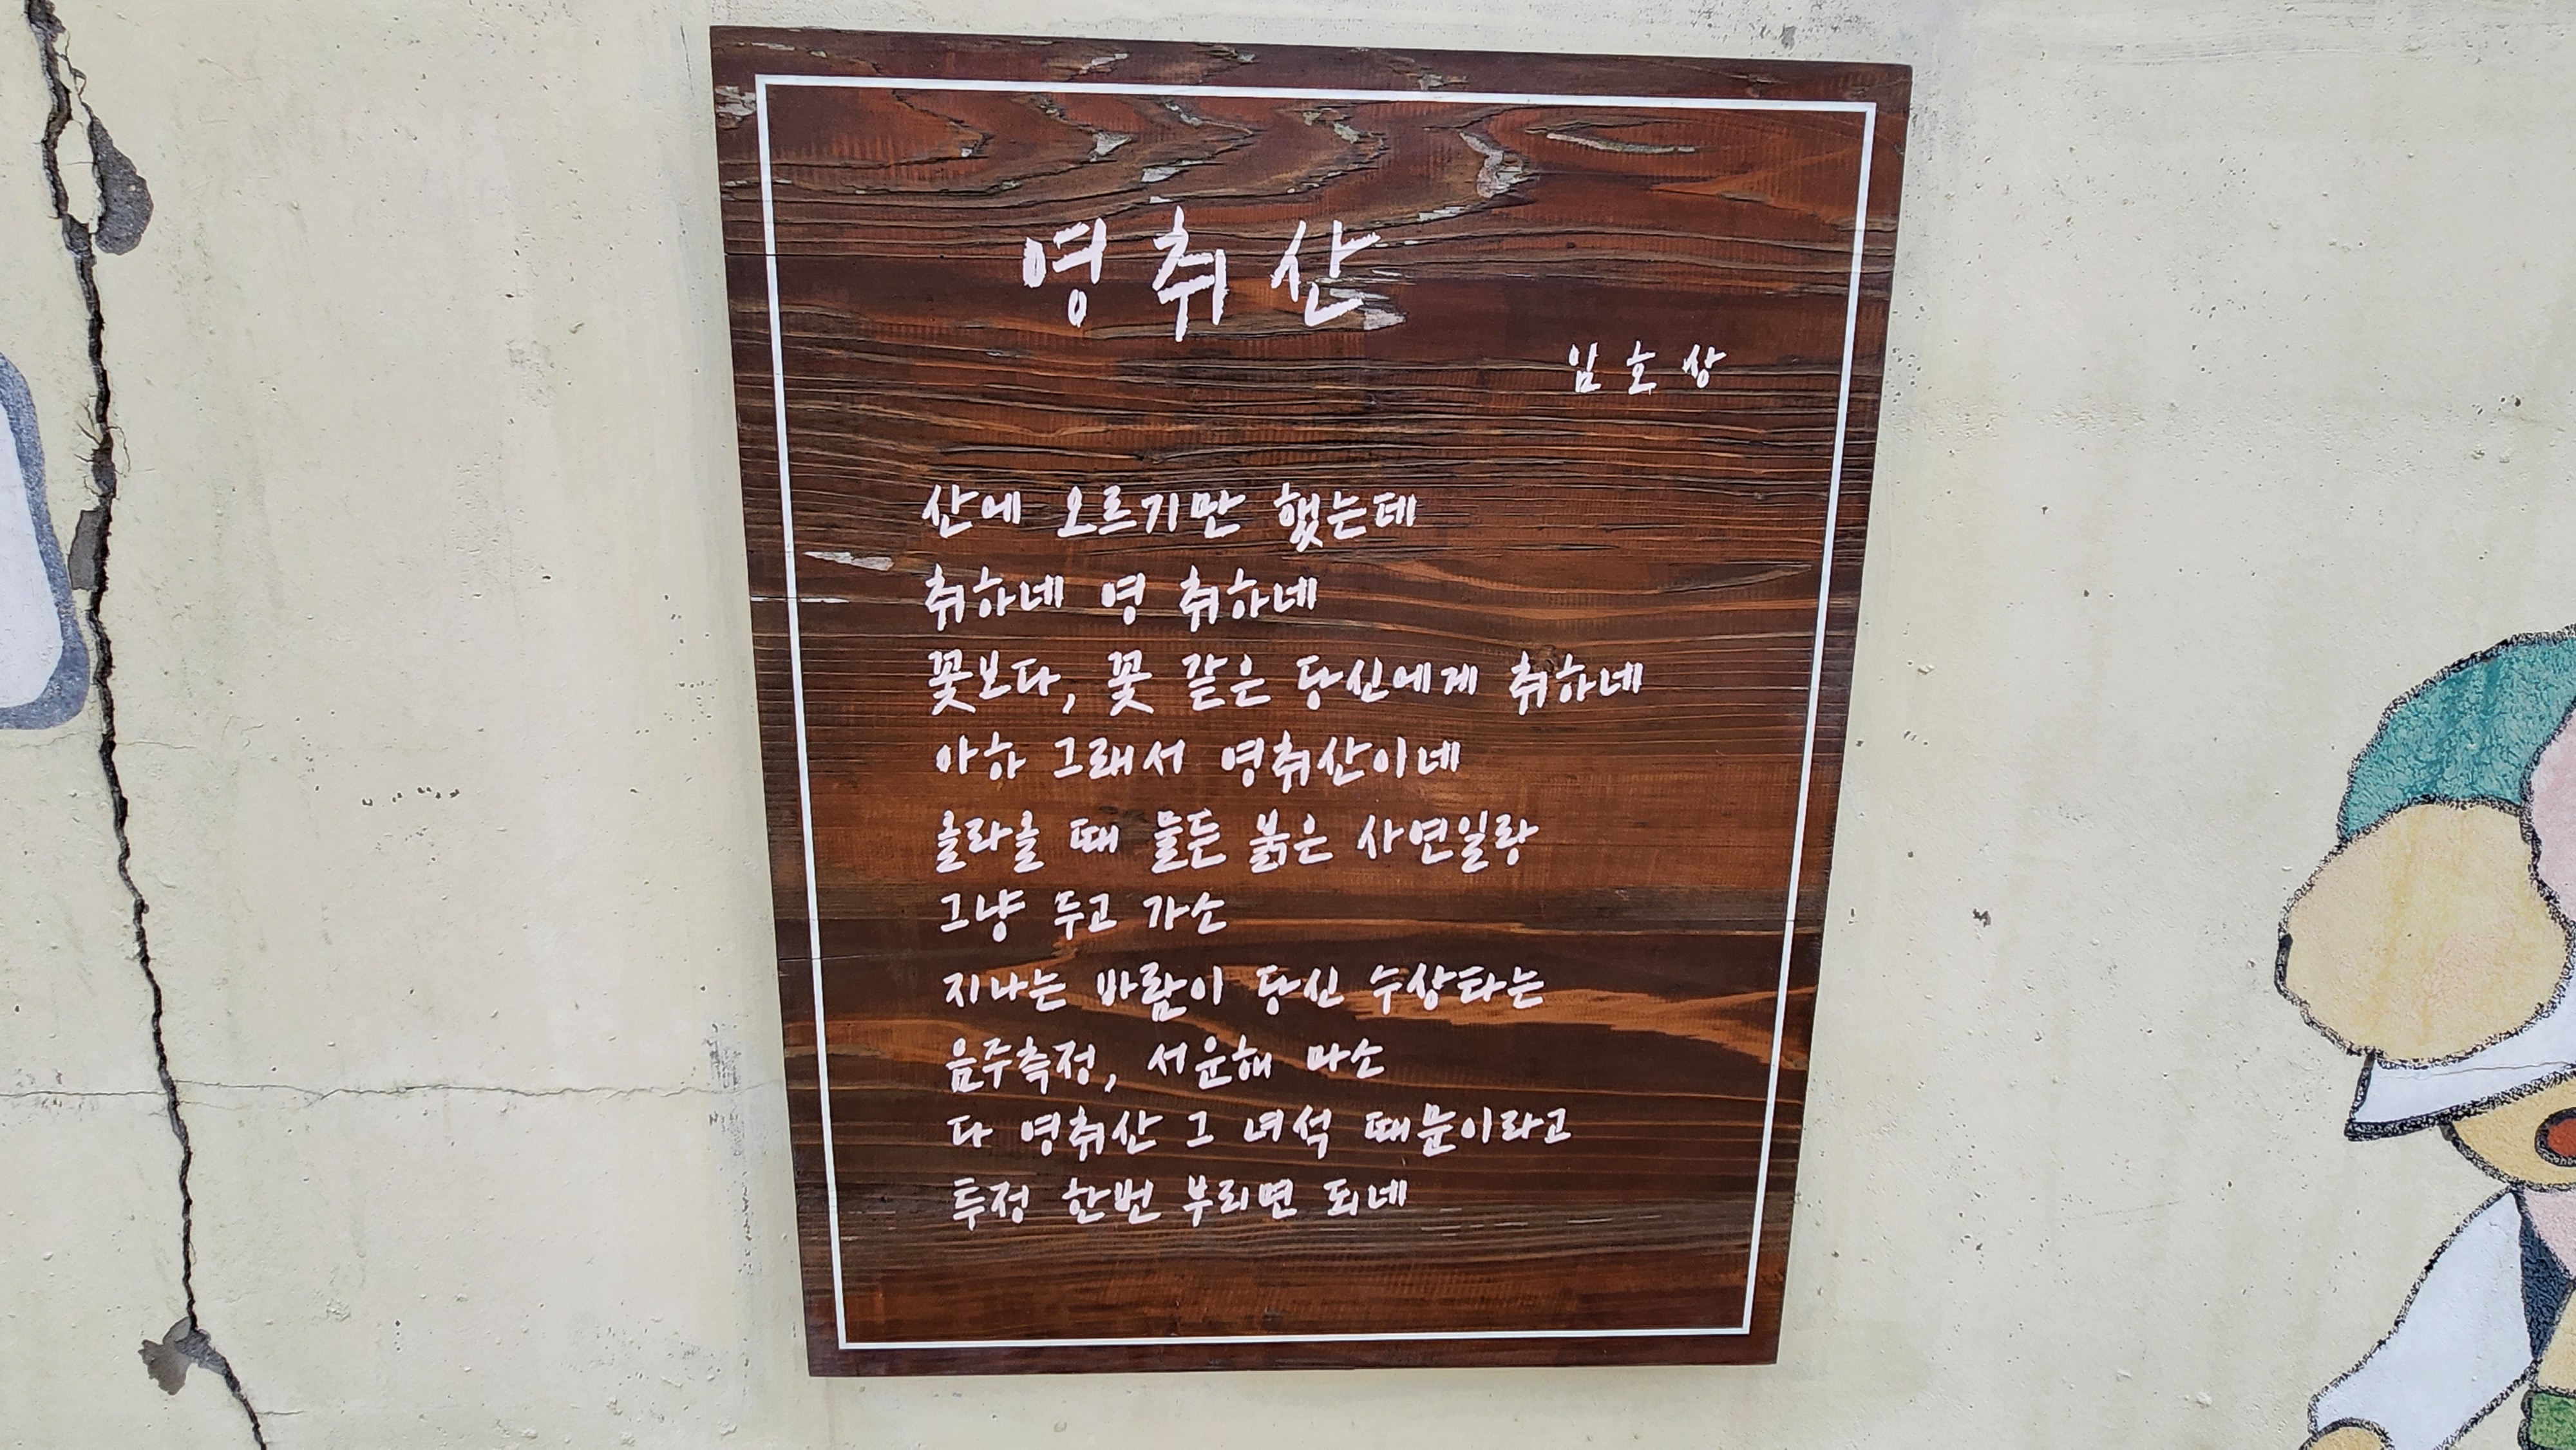 영취산
임호상
산에 오르기만 했는데
취하네 영 취하네
꽃보다, 꽃 같은 당신에게 취하네
아하 그래서 영취산이네
올라올 때 물든 붉은 사연일랑
그냥 두고 가소
지나는 바람이 당신 수상타는
음주측정, 서운해 마소
다 영취산 그 녀석 때문이라고
투정 한번 부리면 되네